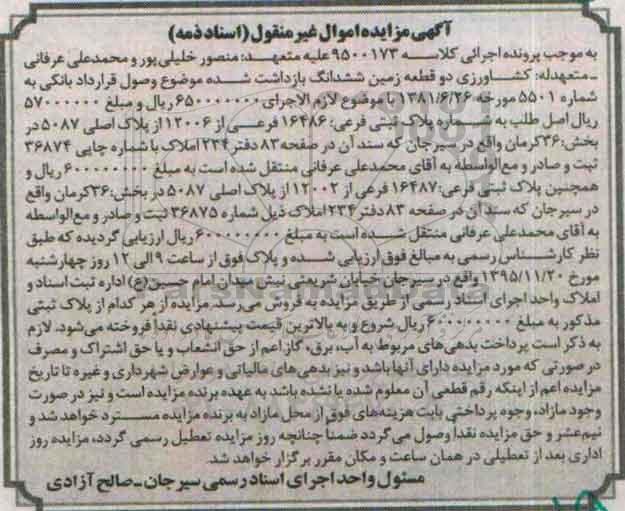 آگهی مزایده اموال غیر منقول (اسناد ذمه)
به موجب پرونده اجرائی کلاسه ۹۵۰۰۱۷۳ علیه متعهد: منصور خلیلی‌پور و محمدعلی عرفانی
ـ متعهدله: کشاورزی دو قطعه زمین ششدانگ بازداشت شده موضوع وصول قرارداد بانکی به
شماره ۵۵۰۱ مورخه ۱۳۸۱/۶/۲۶ با موضوع لازم الاجرای ۶۵۰۰۰۰۰۰۰ ریال و مبلغ ۵۷۰۰۰۰۰۰
ریال اصل طلب به شماره پلاک ثبتی فرعی: ۱۶۴۸۶ فرعی از ۱۲۰۰۶ از پلاک اصلی ۵۰۸۷ در
بخش: ۳۶ کرمان واقع در سیرجان که سند آن در صفحه ۸۳ دفتر ۲۳۴ املاک با شماره چاپی ۳۶۸۷۴
ثبت و صادر و مع‌الواسطه به آقای محمدعلی عرفانی منتقل شده است به مبلغ ۶۰۰۰۰۰۰۰۰ ریال و
همچنین پلاک ثبتی فرعی: ۱۶۴۸۷ فرعی از ۱۲۰۰۲ از پلاک اصلی ۵۰۸۷ در بخش: ۳۶ کرمان واقع
در سیرجان که سند آن در صفحه ۸۳ دفتر ۲۳۴ املاک ذیل شماره ۳۶۸۷۵ ثبت و صادر و مع‌الواسطه
به آقای محمدعلی عرفانی منتقل شده است به مبلغ ۶۰۰۰۰۰۰۰۰ ریال ارزیابی گردیده که طبق
نظر کارشناس رسمی به مبالغ فوق ارزیابی شده و پلاک فوق از ساعت ۹ الی ۱۲ روز چهارشنبه
مورخ ۱۳۹۵/۱۱/۲۰ واقع در سیرجان خیابان شریعتی نبش میدان امام حسین(ع) اداره ثبت اسناد و
املاک واحد اجرای اسناد رسمی از طریق مزایده به فروش می‌رسد. مزایده از هر کدام از پلاک ثبتی
مذکور به مبلغ ۶۰۰۰۰۰۰۰۰ ریال شروع و به بالاترین قیمت پیشنهادی نقدا فروخته می‌شود. لازم
به ذکر است پرداخت بدهی‌های مربوط به آب، برق، گاز اعم از حق انشعاب و یا حق اشتراک و مصرف
در صورتی که مورد مزایده دارای آنها باشد و نیز بدهی‌های مالیاتی و عوارض شهرداری و غیره تا تاریخ
مزایده اعم از اینکه رقم قطعی آن معلوم شده یا نشده باشد به عهده برنده مزایده است و نیز در صورت
وجود مازاد، وجوه پرداختی بابت هزینه‌های فوق از محل مازاد به برنده مزایده مسترد خواهد شد و
نیم‌عشر و حق مزایده نقداً وصول می‌گردد ضمناً چنانچه روز مزایده تعطیل رسمی گردد، مزایده روز
اداری بعد از تعطیلی در همان ساعت و مکان مقرر برگزار خواهد شد.
مسئول واحد اجرای اسناد رسمی سیرجان ـ صالح آزادی